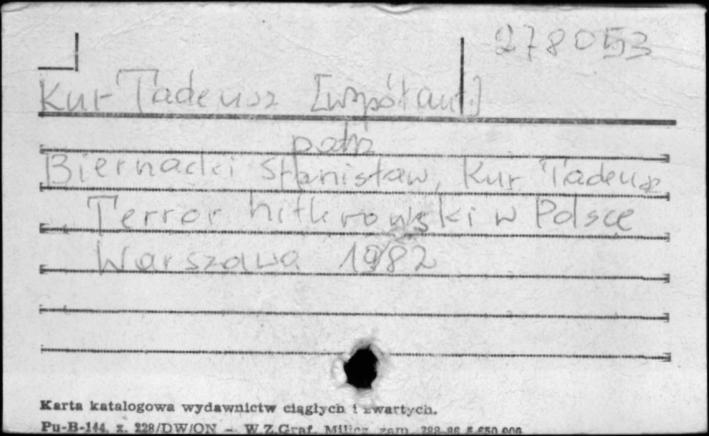 278053
Kur Tadeusz [współaut.]
patrz
Biernacki Stanisław, Kur Tadeusz
Terror hitlerowski w Polsce
Warszawa 1982
Karta katalogowa wydawnictw ciągłych i zwartych.
Pu-B-144, z. 228/DW/ON — W.Z.Graf. Milicz zam.